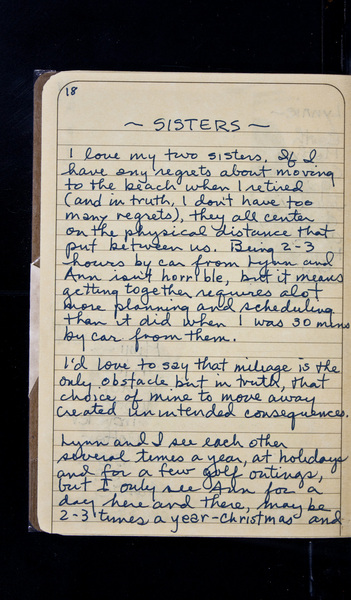 18
~ SISTERS ~
I love my two sisters. If I
have any regrets about moving
to the beach when I retired
(and in truth, I don't have too
many regrets), they all center
on the physical distance that
put between us. Being 2-3
hours by car from Lynn and
Ann isn't horrible, but it means
getting together requires alot
more planning and scheduling
than it did when I was 30 mins
by car from them.
I'd love to say that mileage is the
only obstacle but in truth, that
choice of mine to move away
created unintended consequences.
Lynn and I see each other
several times a year, at holidays
and for a few golf outings,
but I only see Ann for a
day here and there, maybe
2-3 times a year-Christmas and